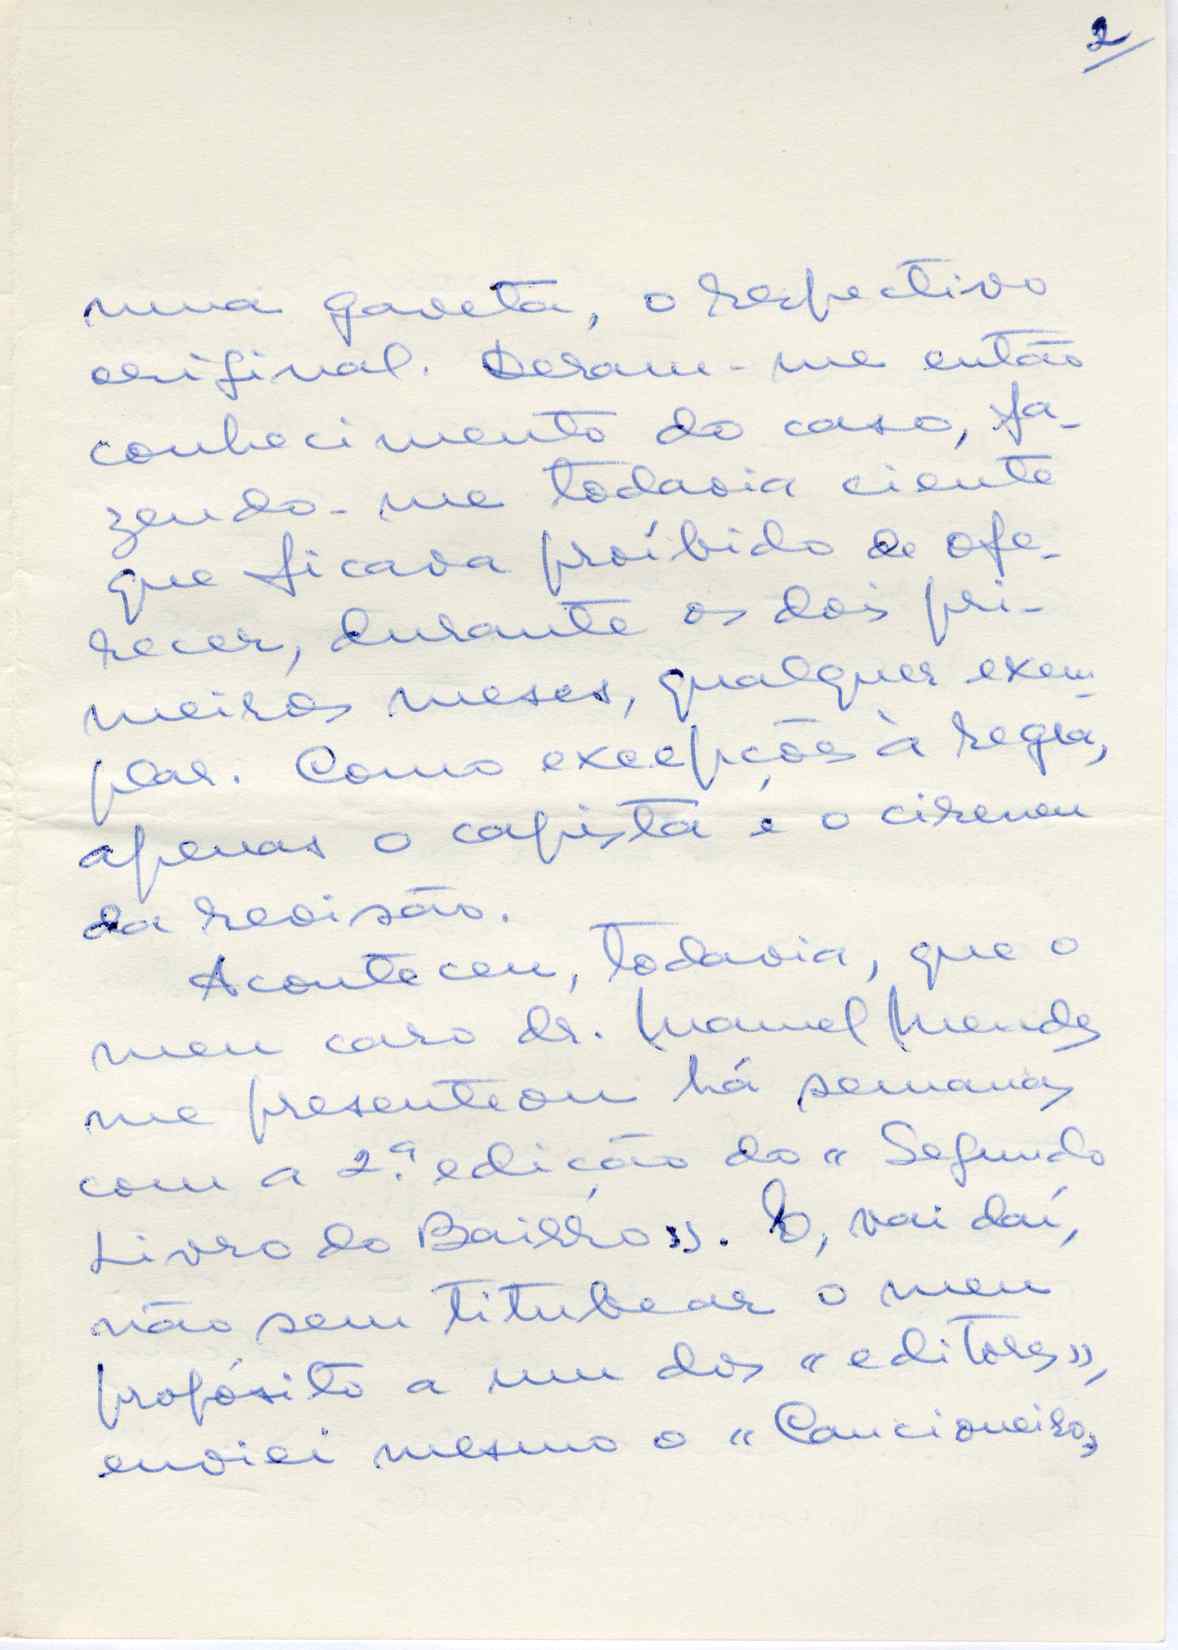 2
numa gaveta, o respectivo
original. Deram-me então
conhecimento do caso, fa-
zendo-me todavia ciente
que ficava proíbido de ofe-
recer, durante os dois pri-
meiros meses, qualquer exem-
plar. Como excepções à regra,
apenas o capista e o cireneu
da revisão.
Aconteceu, todavia, que o
meu caro dr. Manuel Mendes
me presenteou há semanas
com a 2.ª edição do «Segundo
Livro do Bairro». E, vai daí,
não sem titubear o meu
propósito a um dos «editores»,
enviei mesmo o «Cancioneiro»